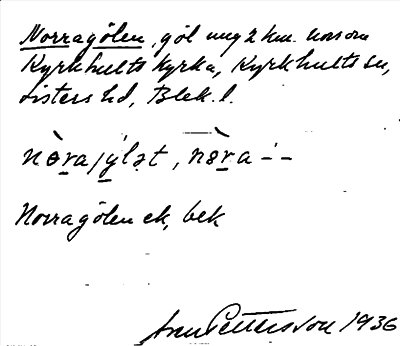 Norragölen, göl ung 2 km. norr om
Kyrkhults kyrka, Kyrkhults sn,
Listers hd, Blek. l.
Norragölen ek, bek
Pettersson 1936